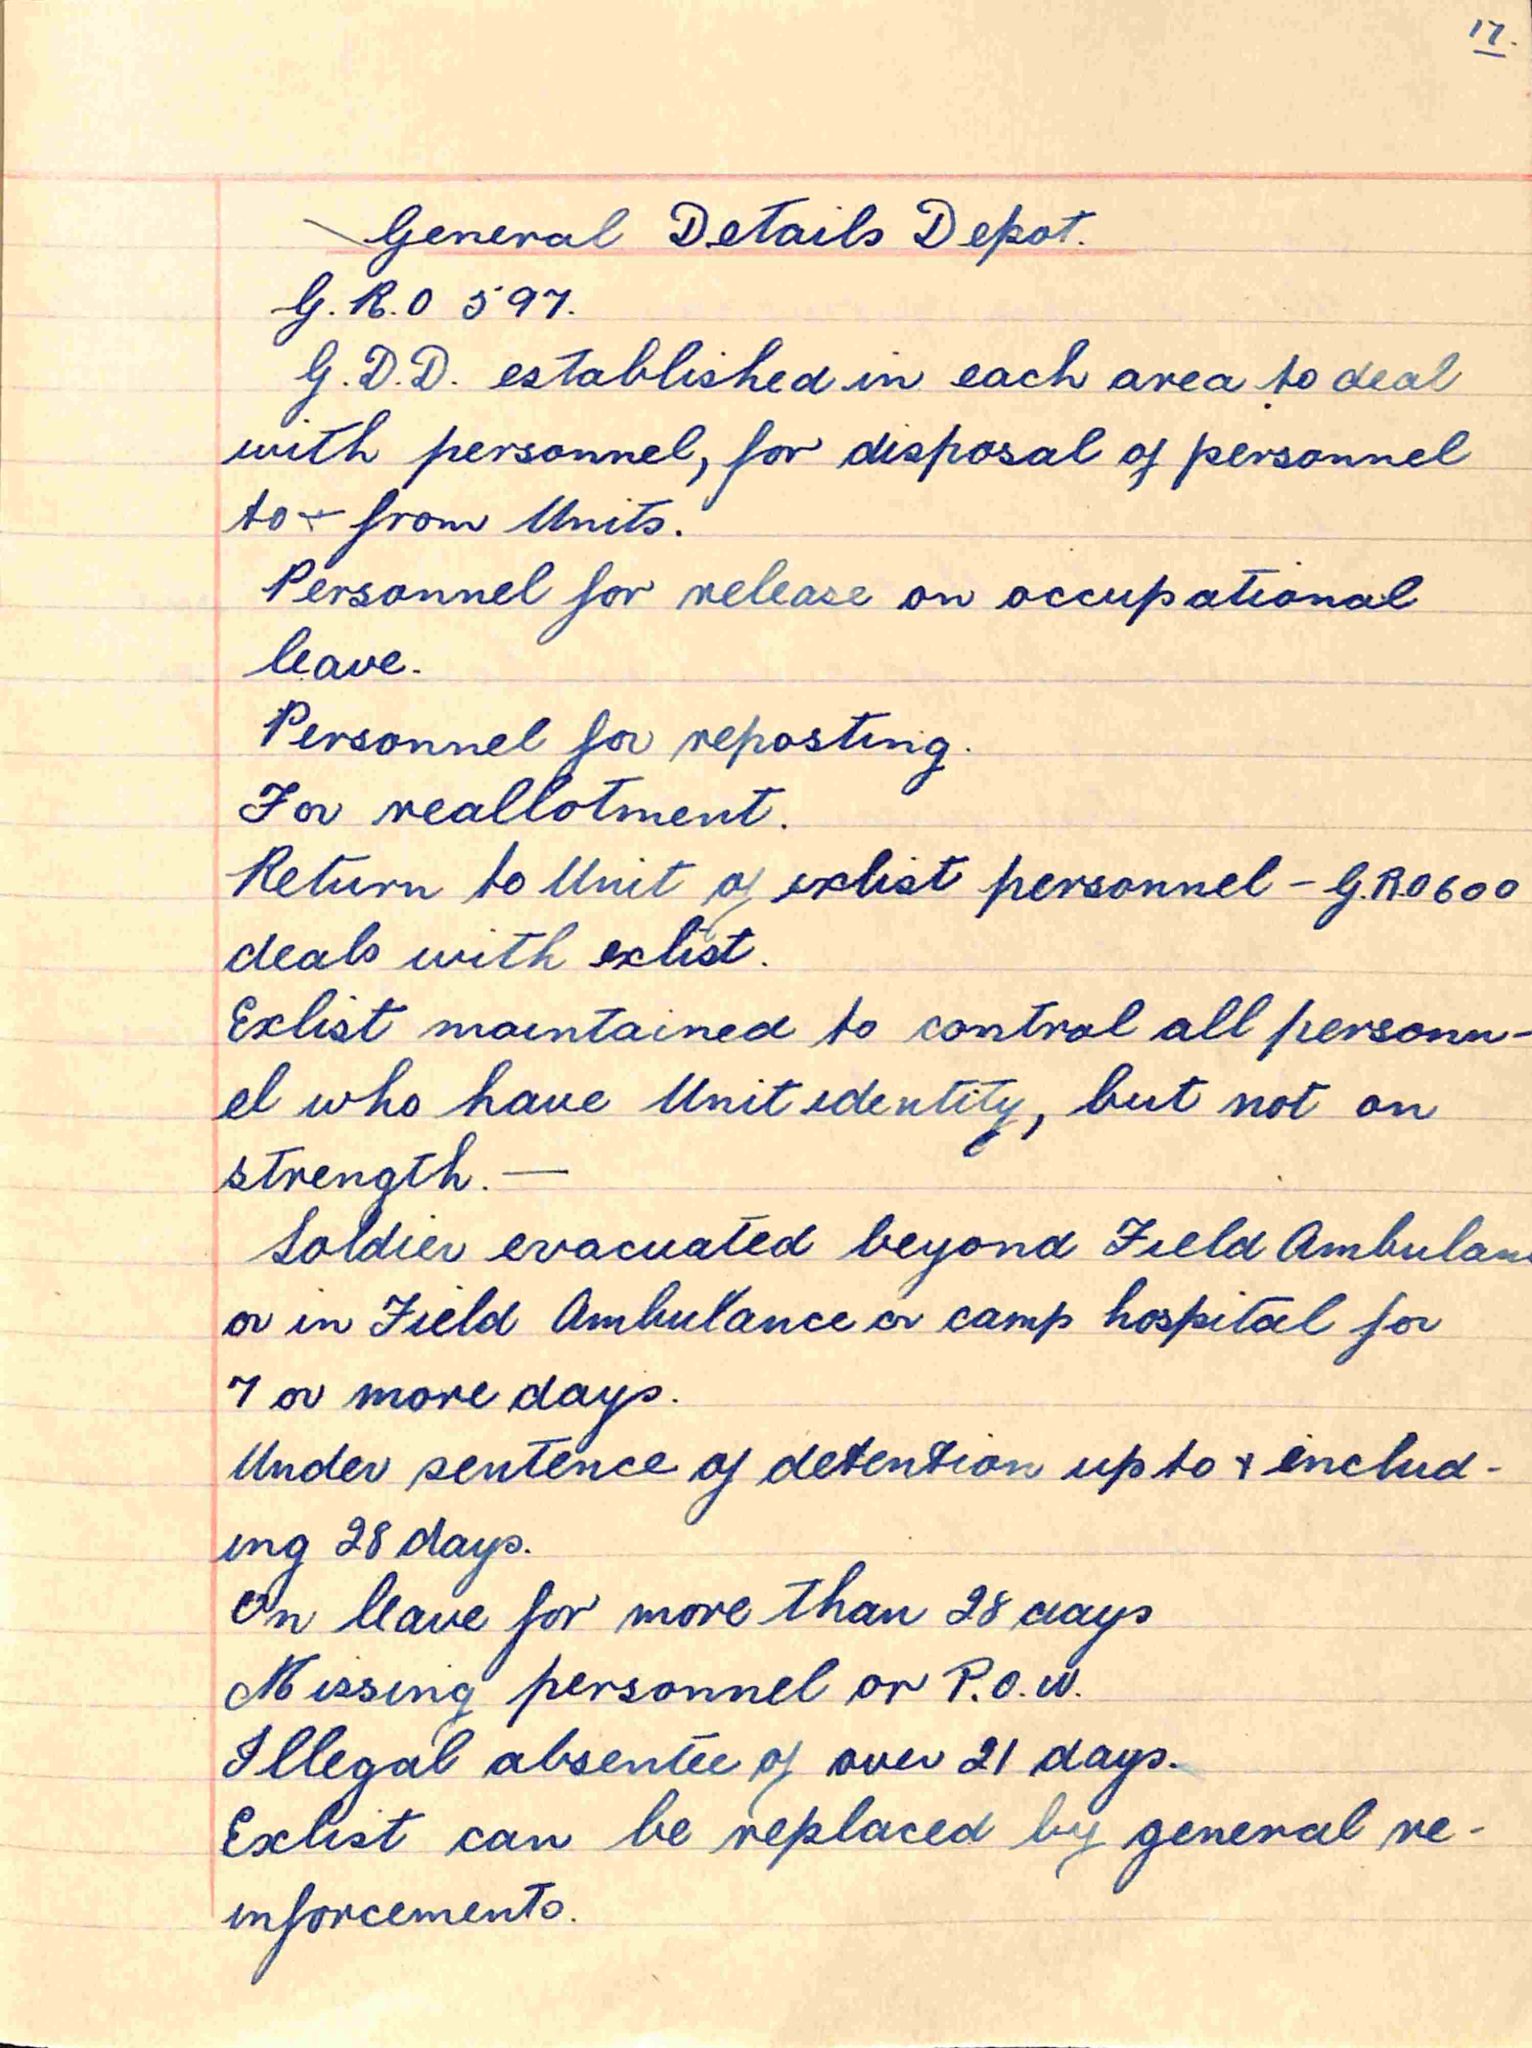 17.
General Details Depot.
G.R.O 597.
G.D.D. established in each area to deal
with personnel, for disposal of personnel
to + from Units.
Personnel for release on occupational
leave.
Personnel for reposting.
For reallotment.
Return to Unit of exlist personnel - G.R.O 600
deals with exlist.
Exlist maintained to control all personn-
el who have Unit identity, but not on
strength. —
Soldier evacuated beyond Field Ambulanc
or in Field Ambulance or camp hospital for
7 or more days.
Under sentence of detention up to + includ-
ing 28 days.
On leave for more than 28 days
Missing personnel or P.O.W.
Illegal absentee of over 21 days.
Exlist can be replaced by general re-
inforcements.